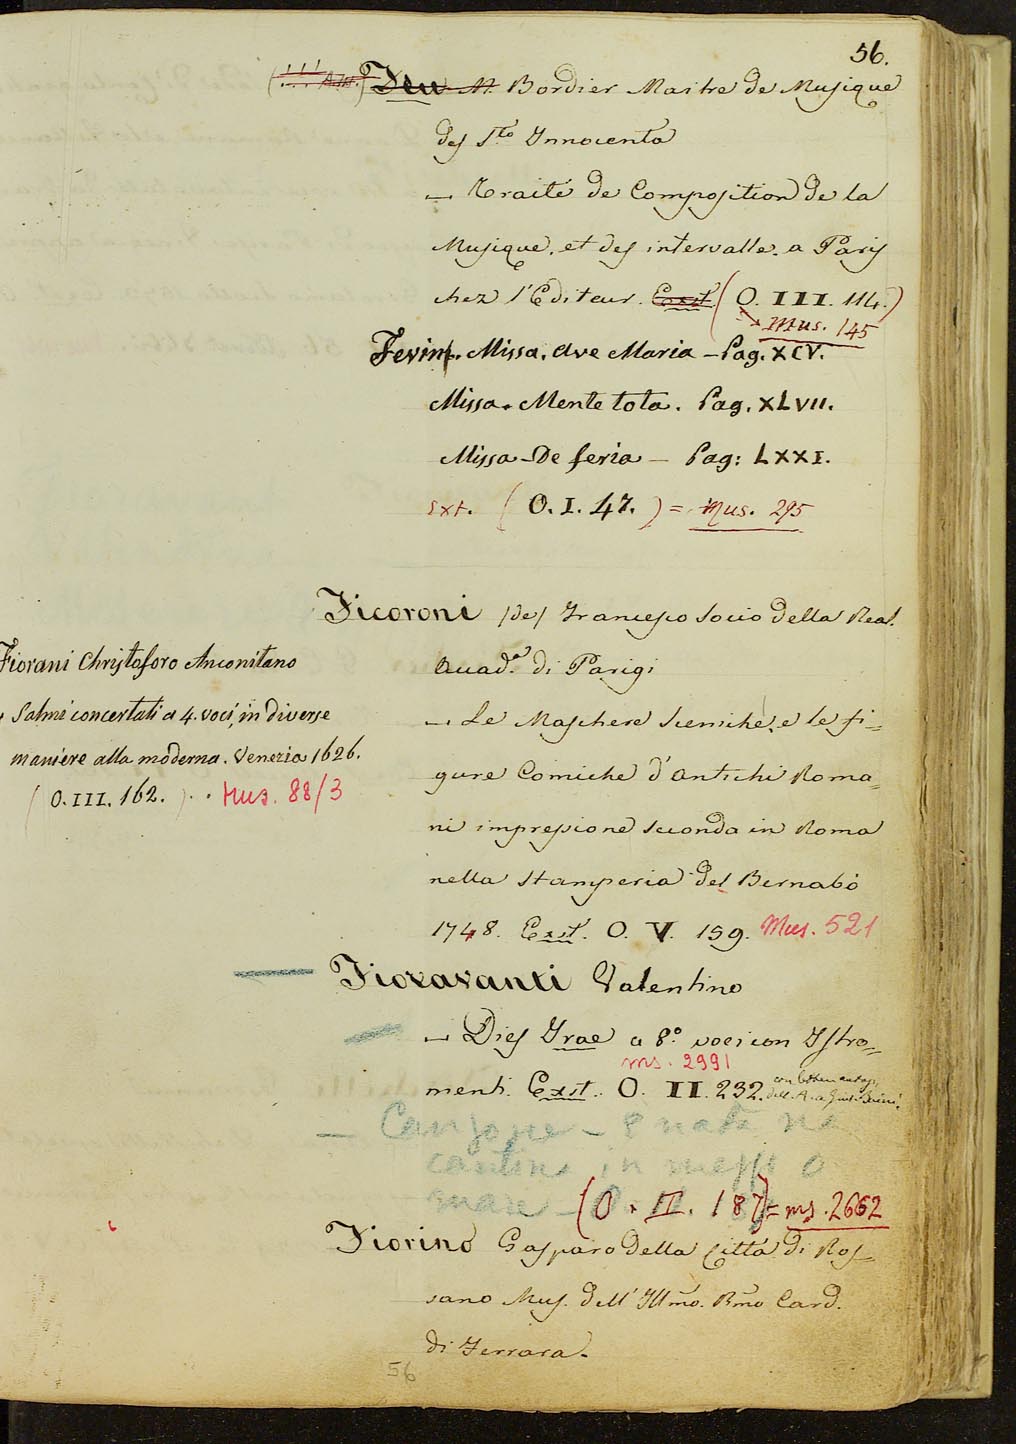 56.
Feu M. Bordier Maitre de Musique
des S.to Innocenta
— Traité de Composition de la
Musique, et des intervalle. a Paris
chez l'Editeur. Exst. (O. III. 114.)
Mus. 145
Fevin. Missa. Ave Maria — Pag. XCV.
Missa. Mente tota. Pag. XLVII.
Missa De feria — Pag: LXXI.
Ext. (O. I. 47.) = Mus. 295
Ficoroni (de) Francesco Socio della Real.
Accad.a di Parigi
— Le Maschere sceniche, e le fi=
gure Comiche d'antichi Roma=
ni impressione seconda in Roma
nella stamperia del Bernabò
1748. Exst. O. V. 159. Mus. 521
Fiorani Christoforo Anconitano
Salmi concertati a 4. voci, in diverse
maniere alla moderna. Venezia 1626.
(O. III. 162.) . . Mus. 88/3
Fioravanti Valentino
— Dies Irae a 8.o voci con Istro=
ms. 2991
menti. Exst. O. II. 232.
— Canzone — È nata na
cantina in miezzo o
mare — (O. II. 187) = ms. 2662
Fiorino Gasparo della Città di Ros=
sano Mus. dell' Illmo. Rmo Card.
di Ferrara.
56